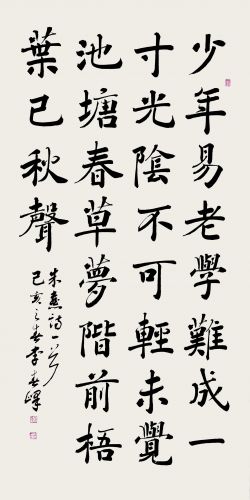 少年易老學難成一
寸光陰不可輕未覺
池塘春草夢階前梧
葉已秋聲
朱熹詩一首
己亥之春李春暉